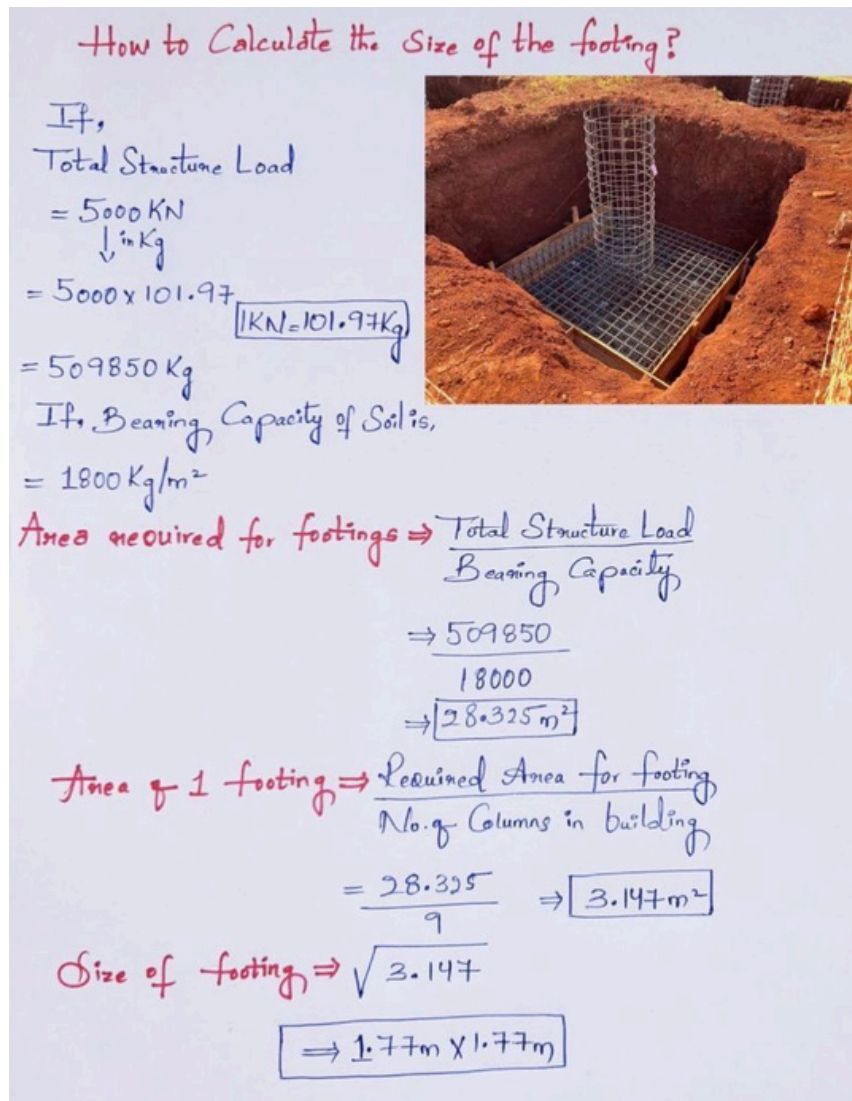 How to Calculate the Size of the footing?
If,
Total Structure Load
= 5000 KN
↓ in Kg
= 5000 x 101.97
1KN=101.97Kg
= 509850 Kg
If, Bearing Capacity of Soil is,
= 1800 Kg/m²
Area required for footings ⇒ Total Structure Load
Bearing Capacity
⇒ 509850
18000
⇒ 28.325 m²
Area of 1 footing ⇒ Required Area for footing
No. of Columns in building
= 28.325
9
⇒ 3.147m²
Size of footing ⇒ √3.147
⇒ 1.77m x 1.77m